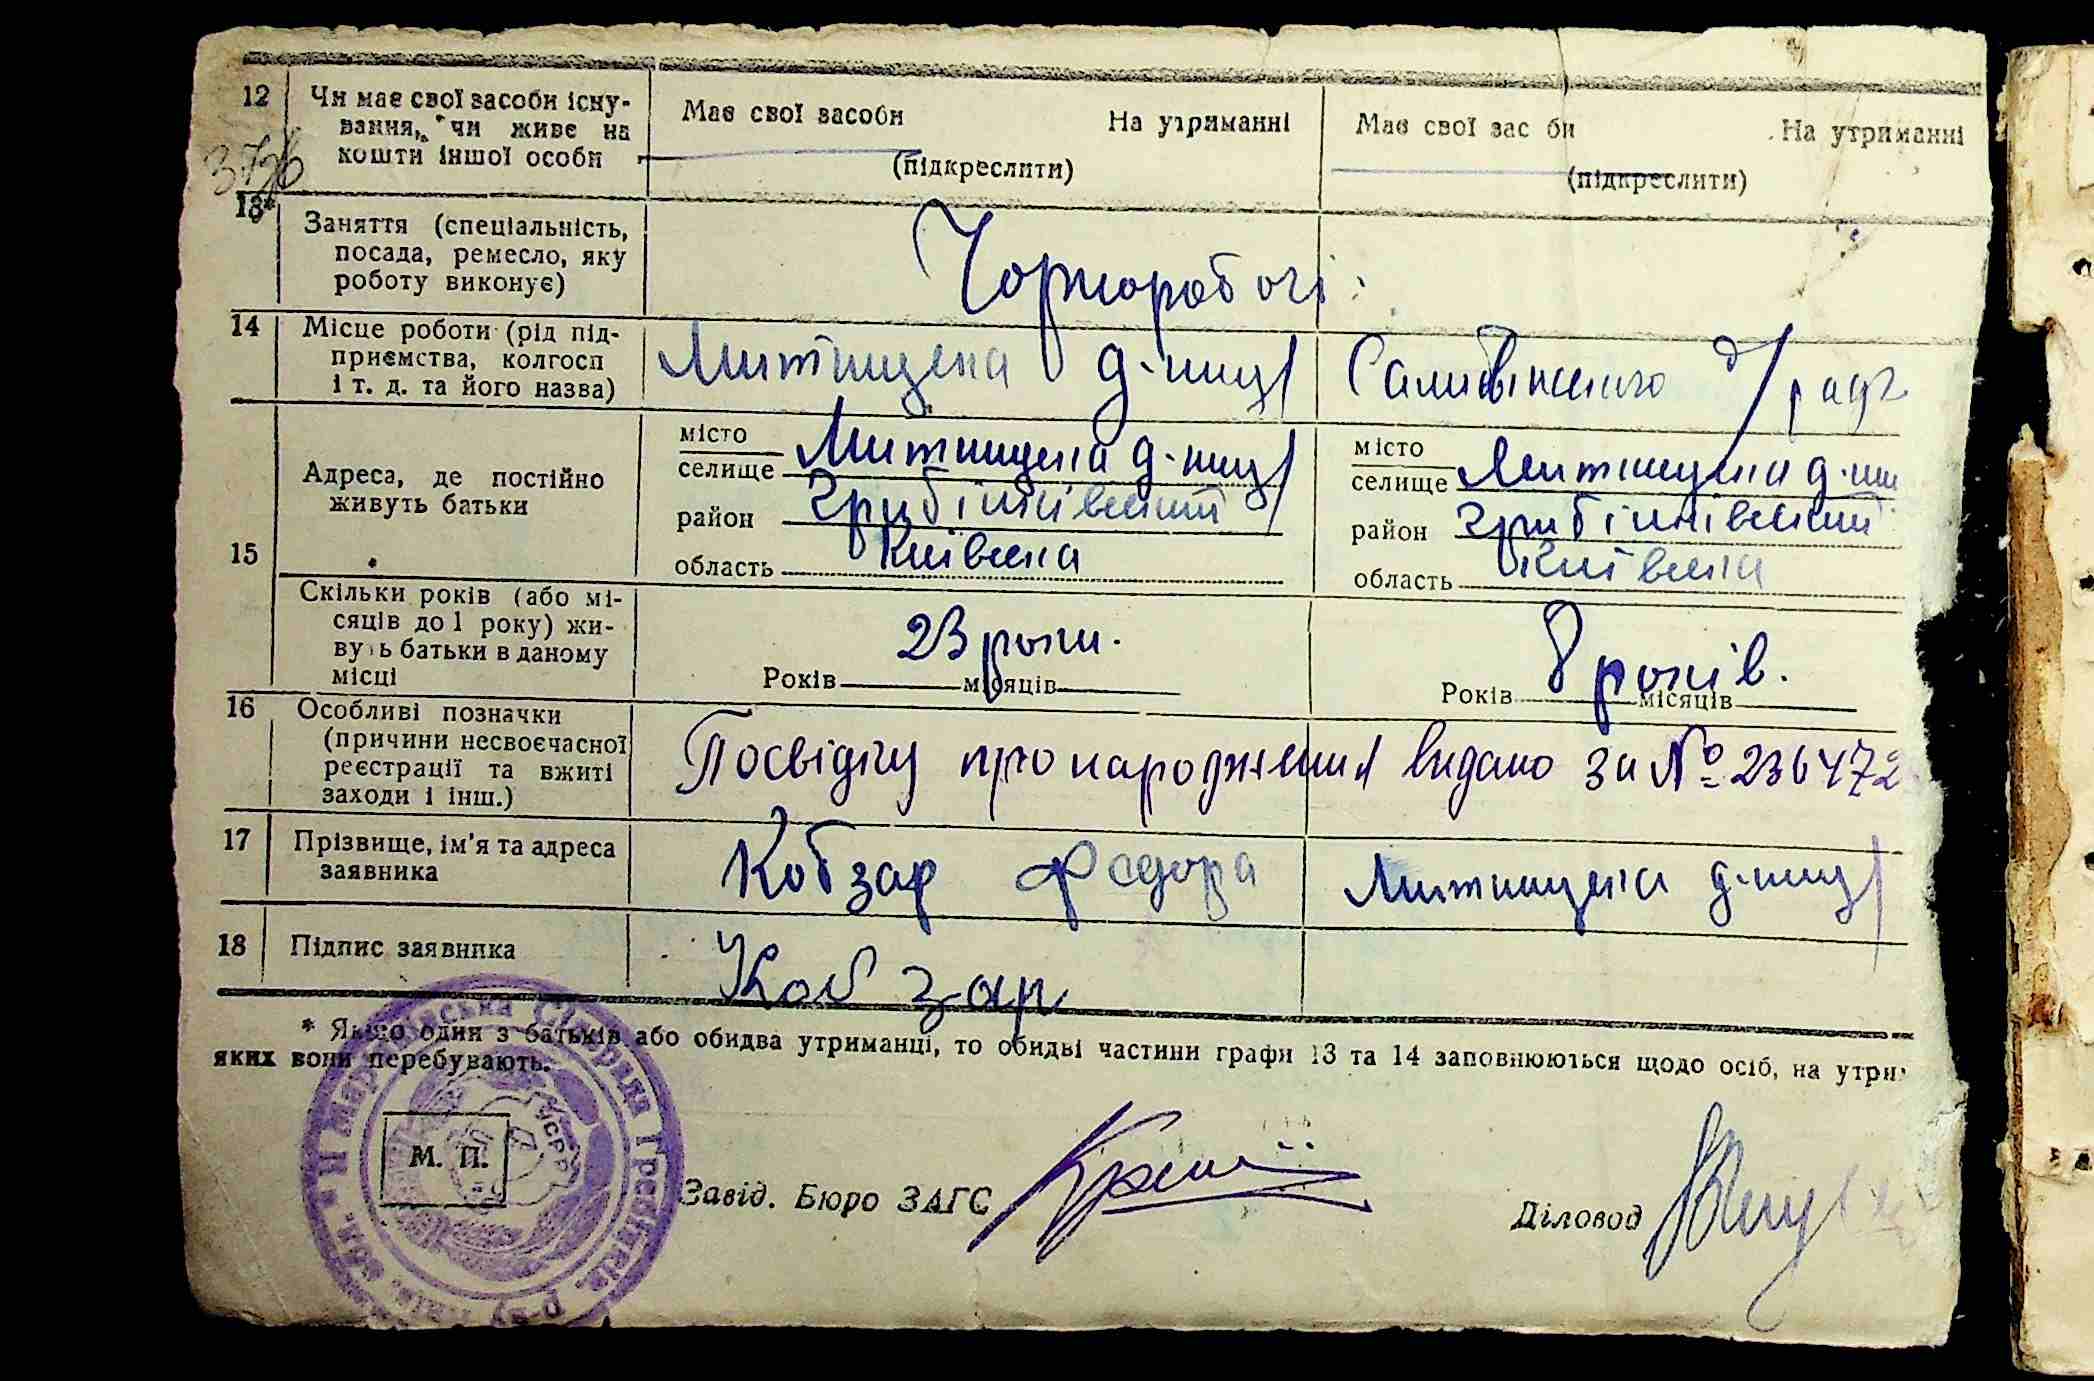 12 Чи має свої засоби існу-
вання, чи живе на
кошти іншої особи
Має свої засоби На утриманні
(підкреслити)
Має свої зас би На утриманні
(підкреслити)
13*
Заняття (спеціальність,
посада, ремесло, яку
роботу виконує)
Чорноробочі
14 Місце роботи (рід під-
приємства, колгосп
і т. д. та його назва)
15
Адреса, де постійно
живуть батьки
місто
селище
район
область Київська
місто
селище
район
область Київська
Скільки років (або мі-
сяців до 1 року) жи-
вуть батьки в даному
місці
23 роки.
Років місяців
8 років.
Років місяців
16 Особливі позначки
(причини несвоєчасної
реєстрації та вжиті
заходи і інш.)
Посвідку про народження видано за № 236472
17 Прізвище, ім'я та адреса
заявника
Кобзар Федора
18 Підпис заявника
Кобзар
* Якщо один з батьків або обидва утриманці, то обидві частини графи 13 та 14 заповнюються щодо осіб, на утри
яких вони перебувають.
М. П.
УСРР
Завід. Бюро ЗАГС
Діловод